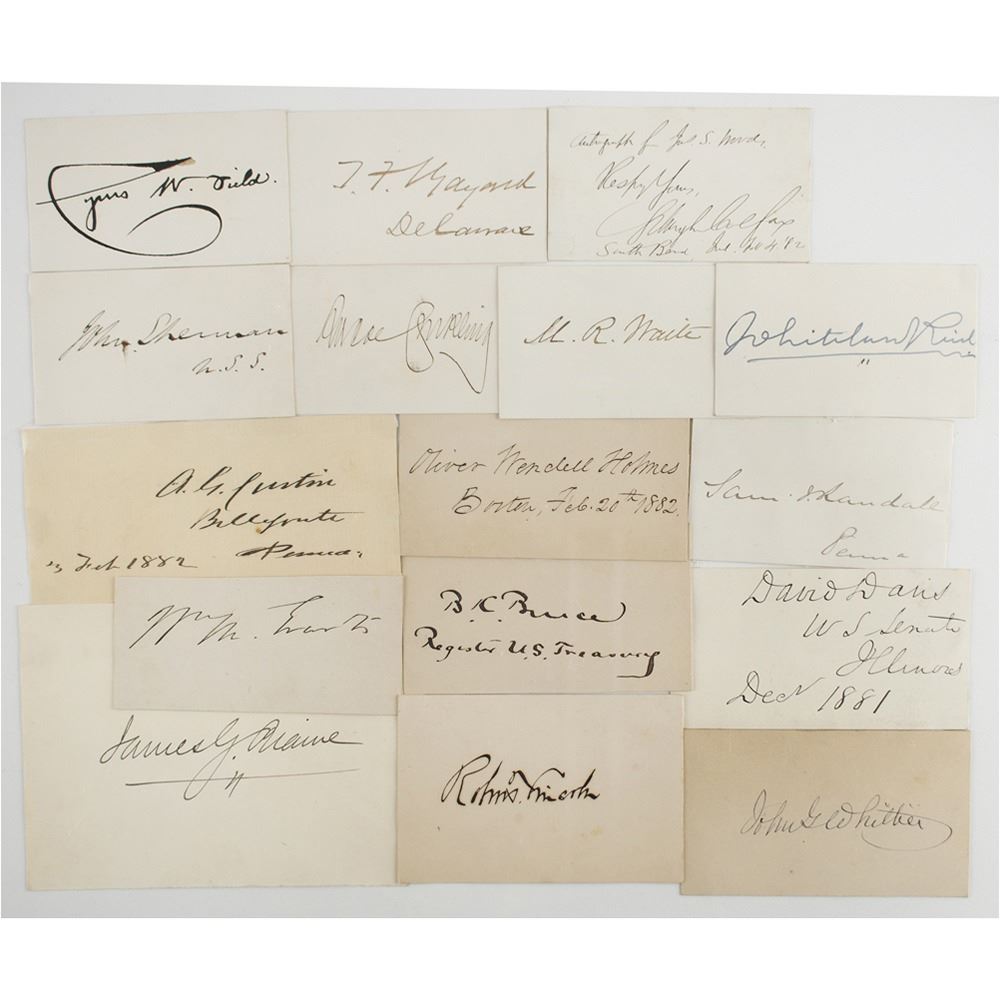 Cyrus W. Field.
T. F. Bayard
Delaware
Autograph for Jas. S. Wood,
Resply Yours,
Schuyler Colfax
South Bend Ind. '82
John Sherman
U. S. S.
Roscoe Conkling
M. R. Waite
Whitelaw Reid
A. G. Curtin
Bellefonte
Penna.
Feb 1882
Oliver Wendell Holmes
Boston, Feb. 20th 1882.
Sam. J. Randall
Penna
Wm M. Evarts
B. K. Bruce
Register U.S. Treasury
David Davis
U S Senate
Illinois
Decr 1881
James G. Blaine
Robt. T. Lincoln
John G. Whittier